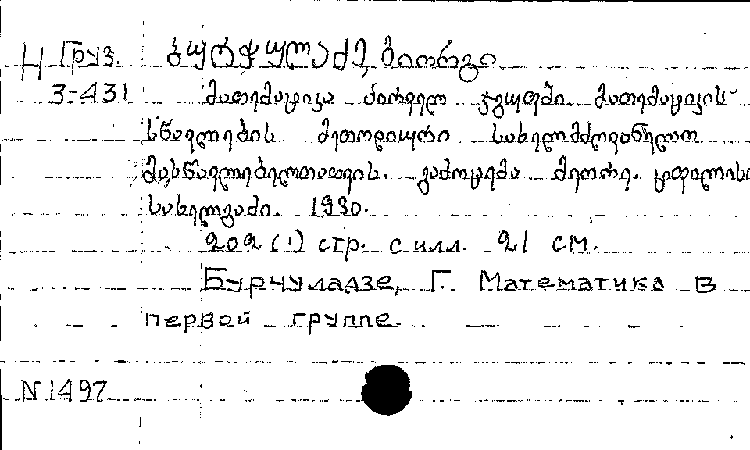 Н Груз. ბურჭულაძე, გიორგი
3-431 მათემატიკა პირველ ჯგუფში. მათემატიკის
სწავლების მეთოდიური სახელმძღვანელო
მასწავლებელთათვის. გამოცემა მეორე. ტფილისი
სახელგამი. 1930.
202 (1) стр. с илл. 21 см.
Бурчуладзе, Г. Математика в
первой группе.
N 1497